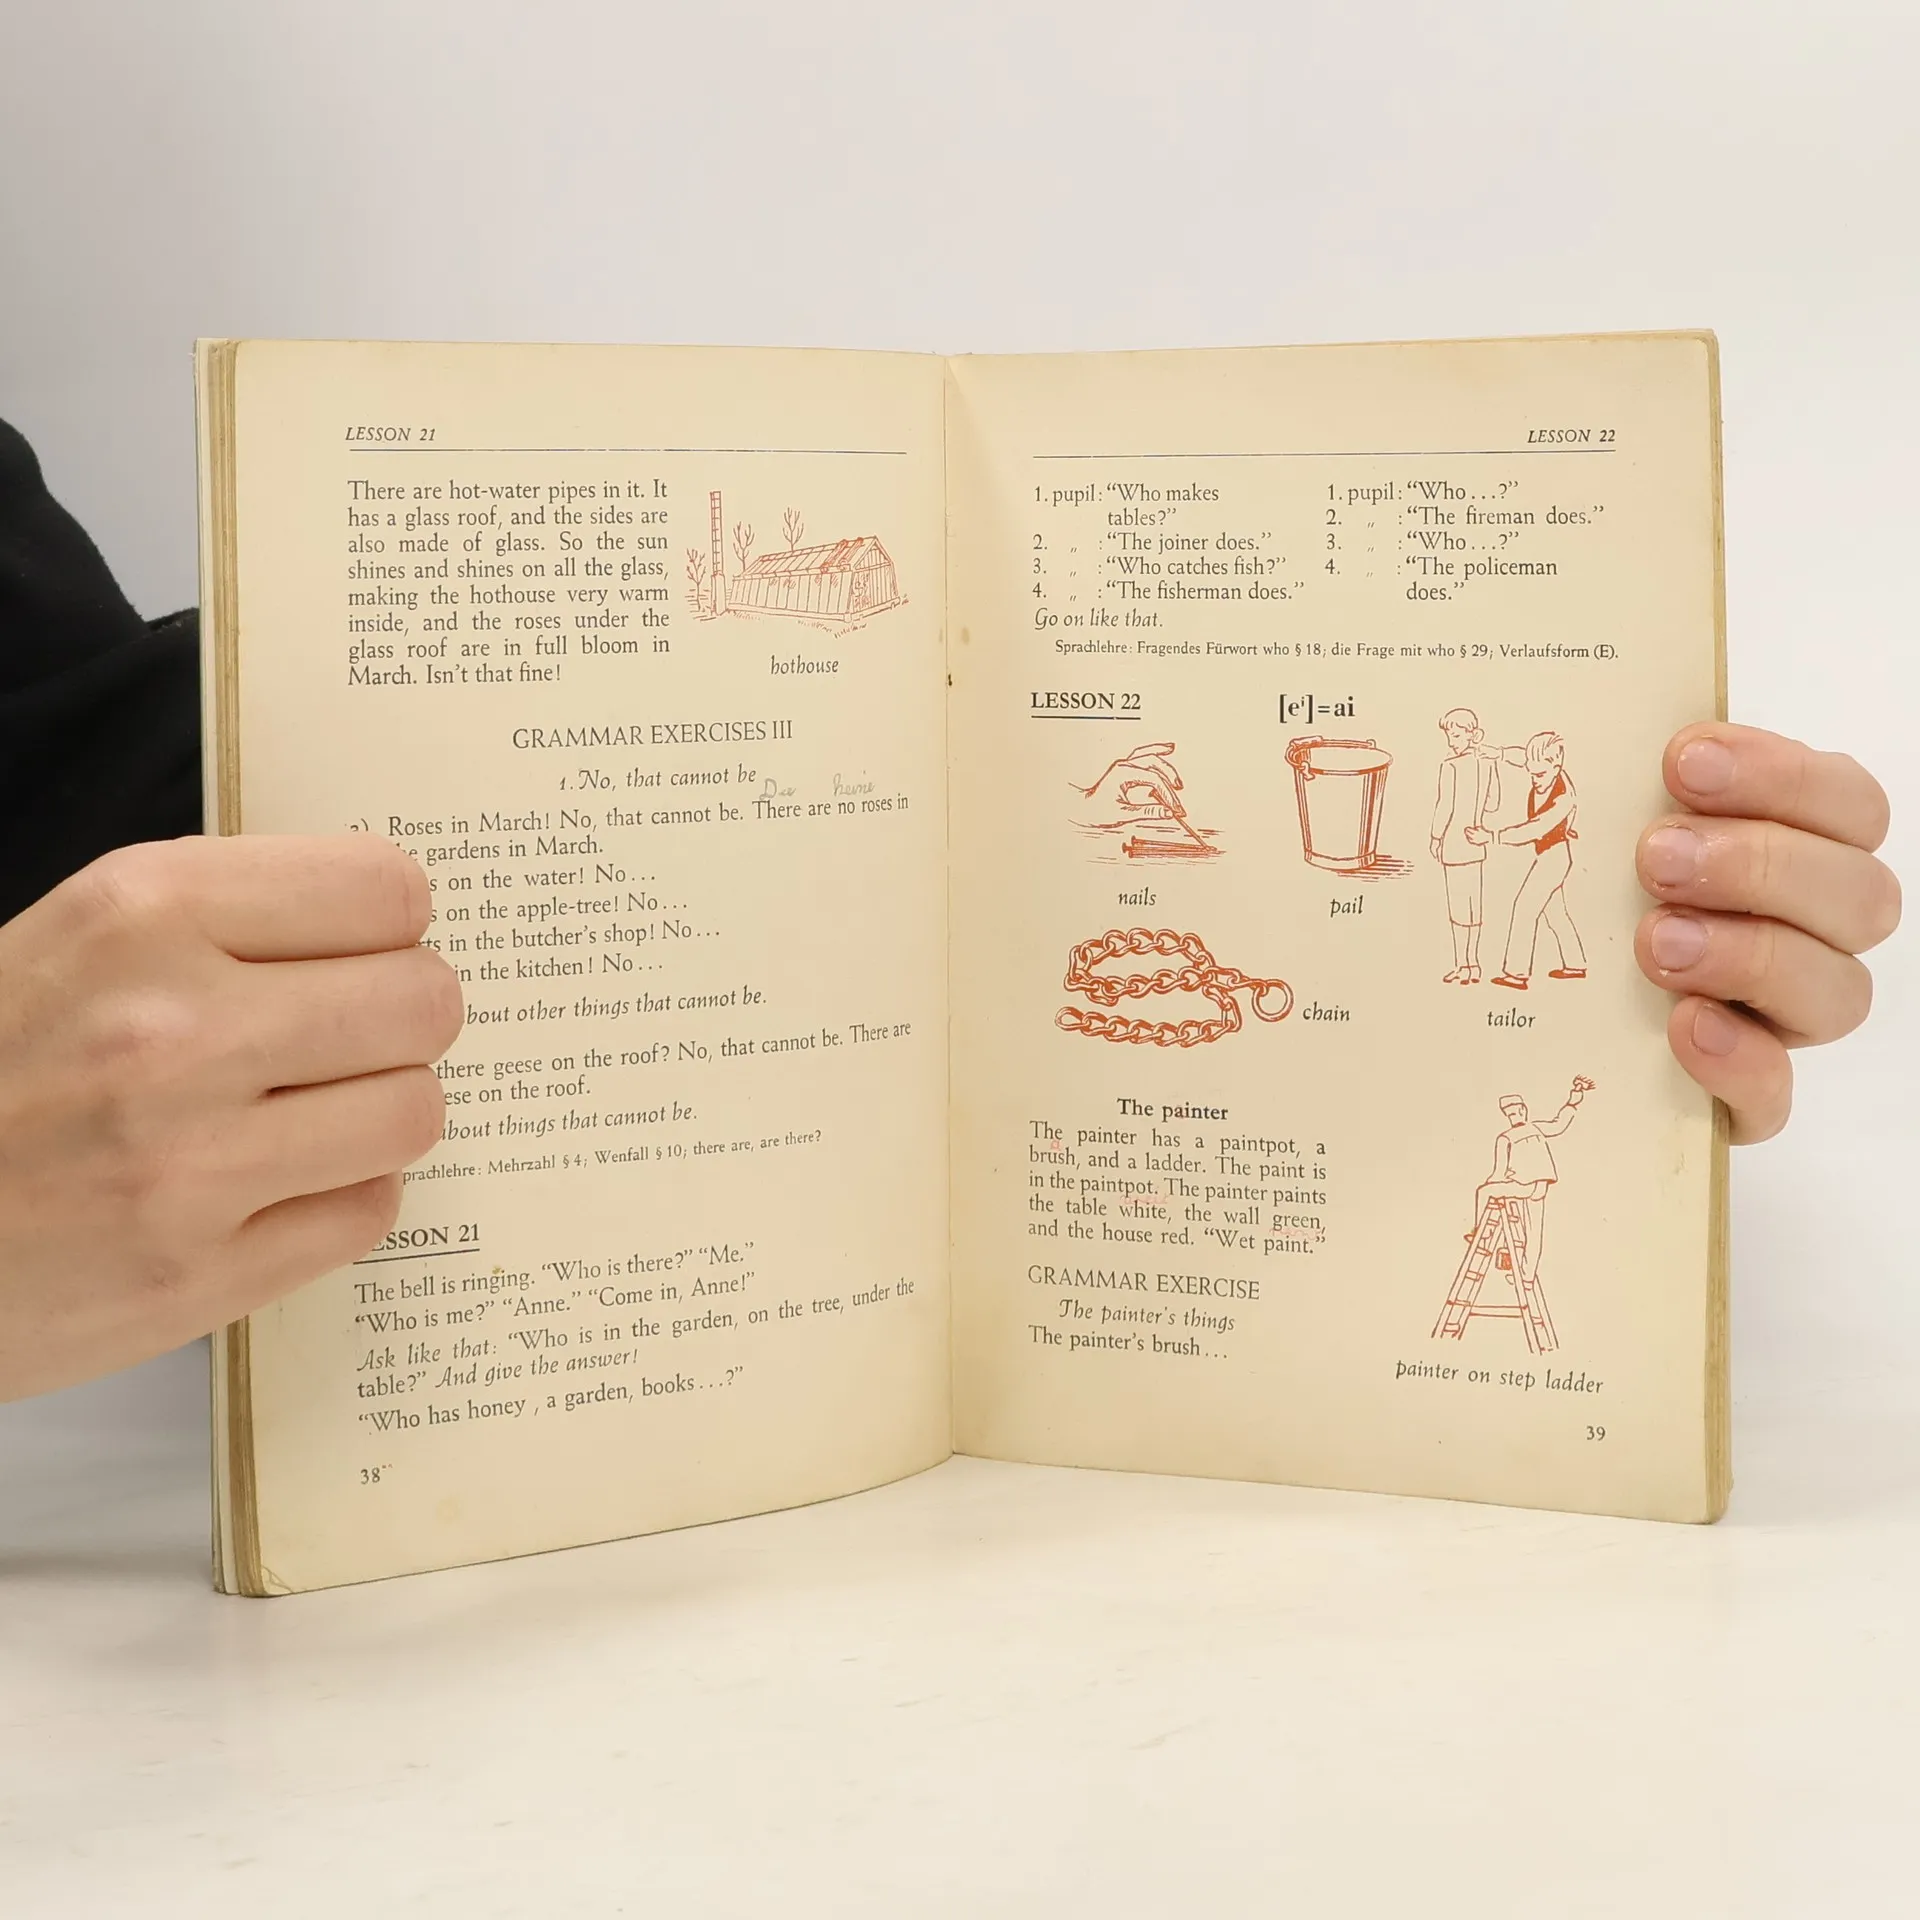 LESSON 21
There are hot-water pipes in it. It
has a glass roof, and the sides are
also made of glass. So the sun
shines and shines on all the glass,
making the hothouse very warm
inside, and the roses under the
glass roof are in full bloom in
March. Isn't that fine!
hothouse
GRAMMAR EXERCISES III
1. No, that cannot be
Roses in March! No, that cannot be. There are no roses in
gardens in March.
on the water! No...
on the apple-tree! No...
in the butcher's shop! No...
in the kitchen! No...
other things that cannot be.
there geese on the roof? No, that cannot be. There are
on the roof.
about things that cannot be.
Mehrzahl § 4; Wenfall § 10; there are, are there?
LESSON 21
The bell is ringing. “Who is there?” “Me.”
“Who is me?” “Anne.” “Come in, Anne!”
Ask like that: “Who is in the garden, on the tree, under the
table?” And give the answer!
“Who has honey , a garden, books...?”
38
LESSON 22
1. pupil: “Who makes
tables?”
2. „ : “The joiner does.”
3. „ : “Who catches fish?”
4. „ : “The fisherman does.”
1. pupil: “Who...?”
2. „ : “The fireman does.”
3. „ : “Who...?”
4. „ : “The policeman
does.”
Go on like that.
Sprachlehre: Fragendes Fürwort who § 18; die Frage mit who § 29; Verlaufsform (E).
LESSON 22
[eⁱ]=ai
nails
pail
chain
tailor
The painter
The painter has a paintpot, a
brush, and a ladder. The paint is
in the paintpot. The painter paints
the table white, the wall green,
and the house red. “Wet paint.”
GRAMMAR EXERCISE
The painter's things
The painter's brush...
painter on step ladder
39